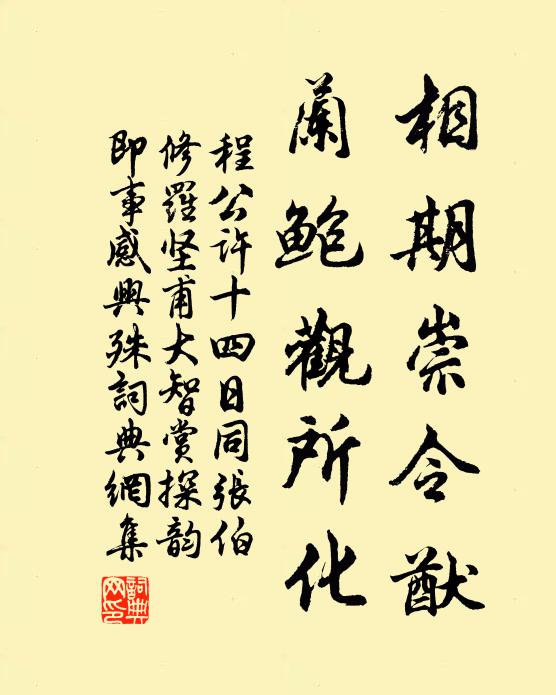 相期崇令猷
蘭鮑觀所化
程公许十四日同張伯
修羅坚甫大智賞探韵
即事感興殊詞典網集
詞典
网印